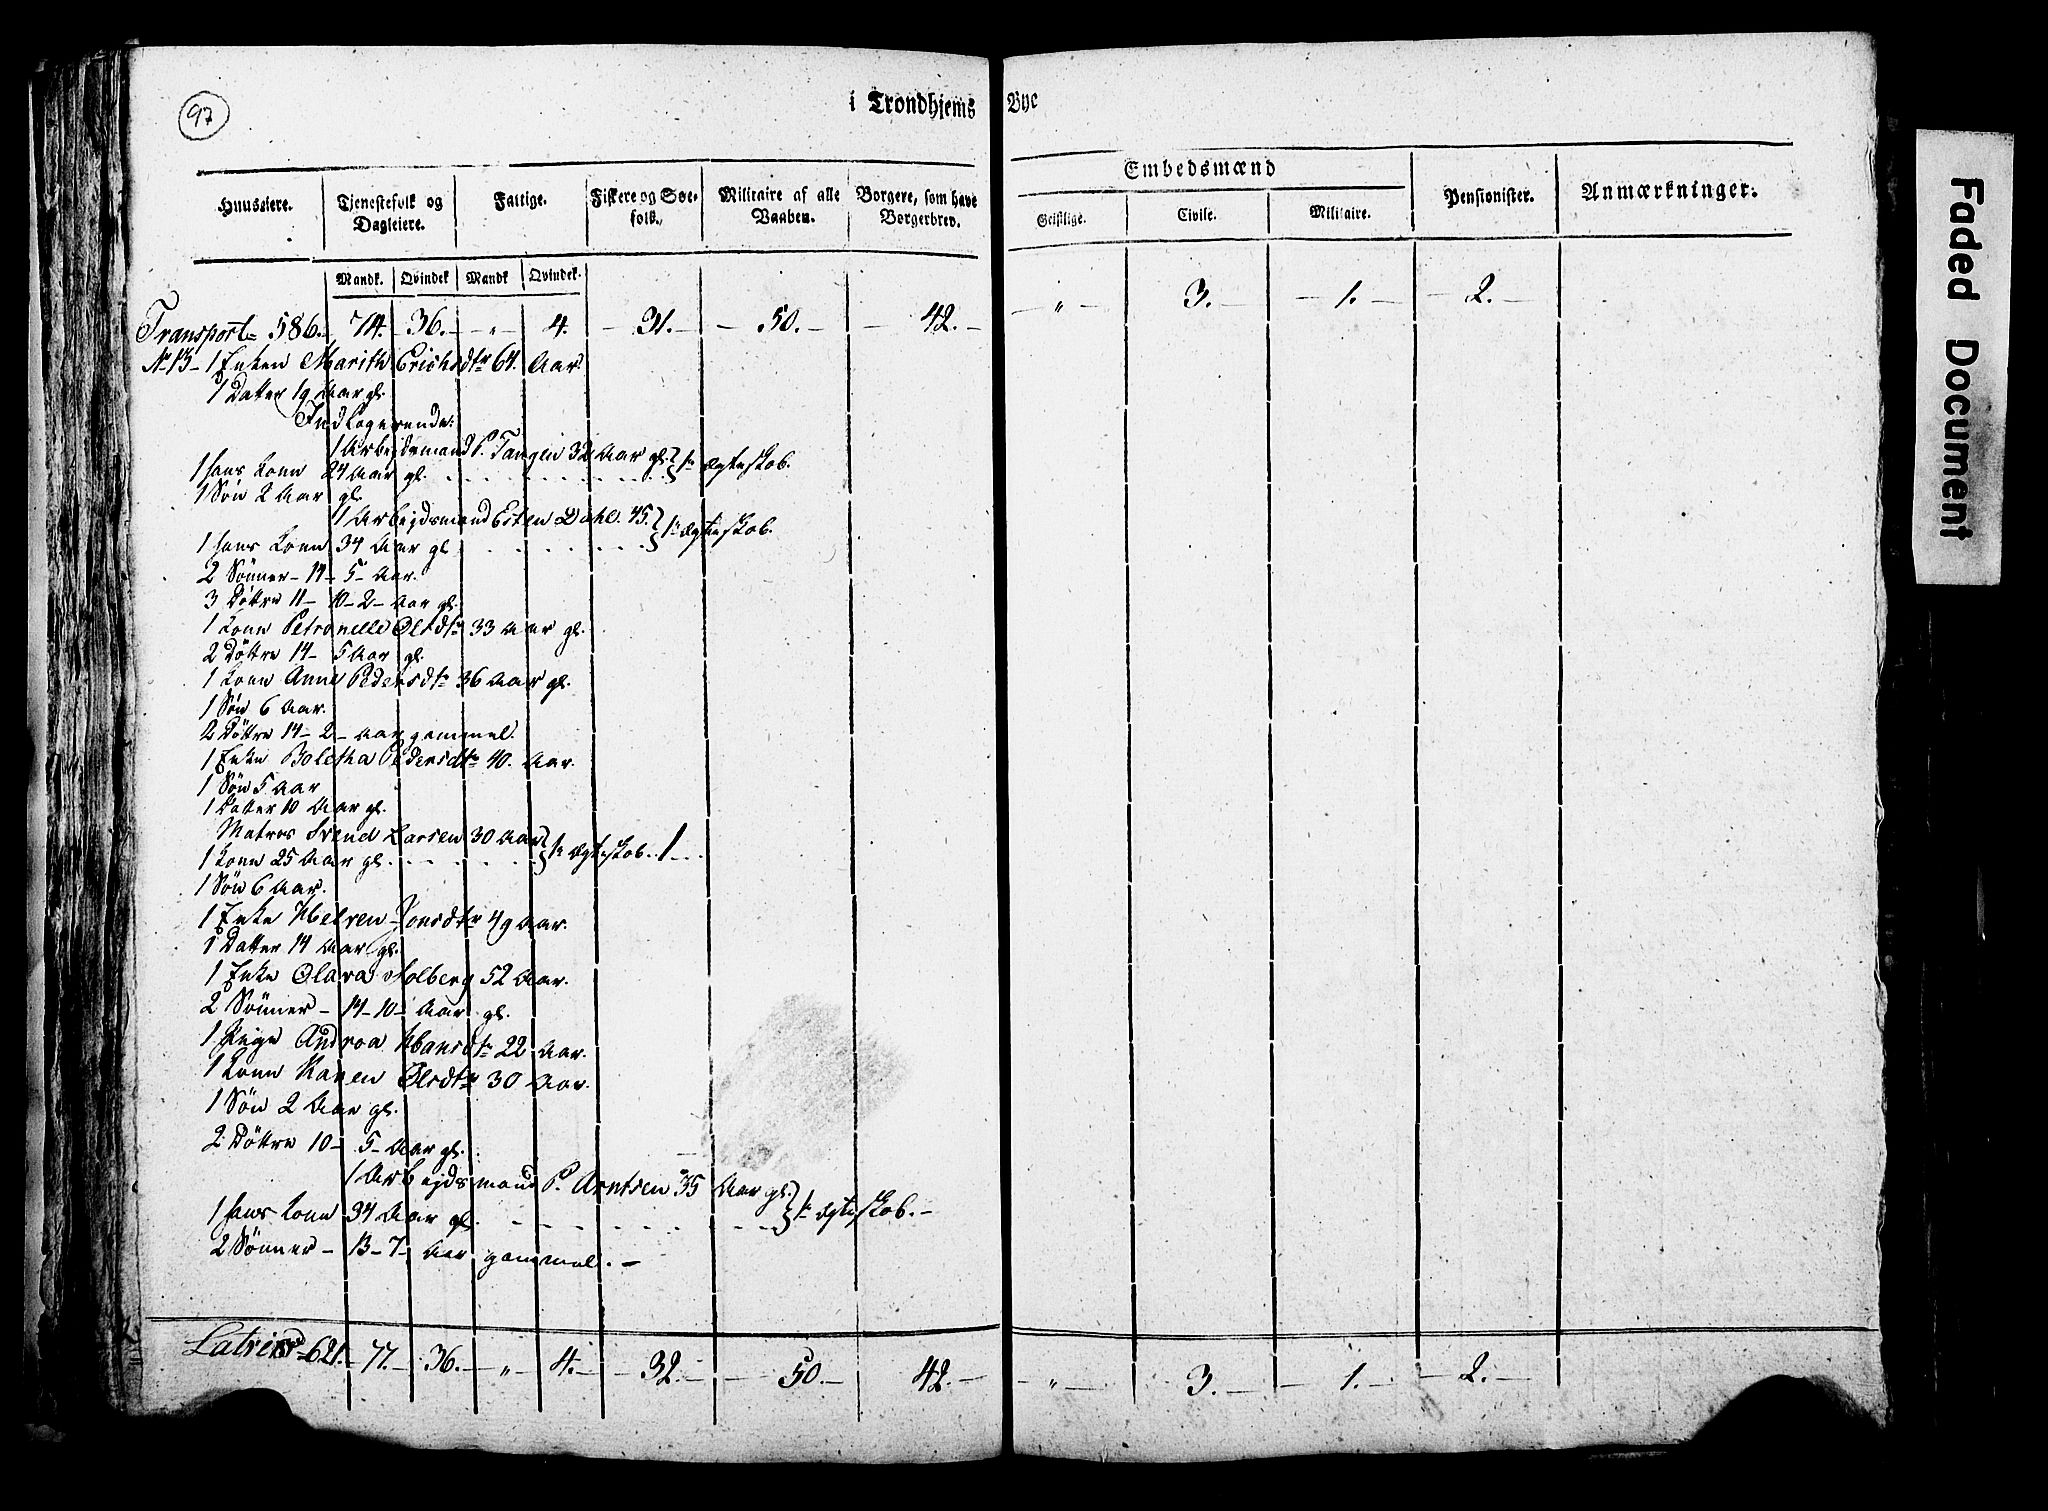 97
i Trondhjems Bye
Huuseiere. Tjenestefolk og Dagleiere. Fattige. Fiskere og Søefolk. Militaire af alle Vaaben. Borgere, som have Borgerbrev. Embedsmænd Geistlige. Civile. Militaire. Pensionister. Anmærkninger.
Mandk. Qvindek Mandk Qvindek.
Transport 586. 74. 36. „ 4. 31. 50. 42. „ 3. 1. 2.
No 13 - 1 Enken Marith Erichsdtr 64. Aar.
1 Datter 19 Aar gl.
Indlogerende:
1 Arbejdsmand P. Tangen 32 Aar gl. } 1te Ægteskab.
1 hans Kone 24 Aar gl.
1 Søn 2 Aar gl.
1 Arbejdsmand Esten Dahl. 45. } 1te Ægteskab.
1 hans Kone 34 Aar gl
2 Sønner - 14 - 5 - Aar.
3 Døttre 11 - 10 - 2 - Aar gl.
1 Kone Petronelle Olsdtr 33 Aar gl.
2 Døttre 14 - 5 Aar gl.
1 Kone Anne Pedersdtr 36 Aar gl.
1 Søn 6 Aar.
2 Døttre 14 - 2 - Aar gammel.
1 Enke Boletha Pedersdtr 40. Aar.
1 Søn 5 Aar
1 Datter 10 Aar gl.
Matros Svend Larsen 30 Aar } 1te Ægteskab. 1
1 Kone 25 Aar gl.
1 Søn 6 Aar.
1 Enke Jonsdtr 49 Aar.
1 Datter 14 Aar gl.
1 Enke Olava Solberg 52 Aar.
2 Sønner - 14 - 10 - Aar gl.
1 Pige Andrea Hansdtr 22 Aar.
1 Kone Karen Olsdtr 30 Aar.
1 Søn 2 Aar gl.
2 Døttre 10 - 5 - Aar gl.
1 Arbejdsmand P. Arntsen 35 Aar gl. } 1te Ægteskab. -
1 hans Kone 34 Aar gl.
2 Sønner - 13 - 7 - Aar gammel. -
Latus 621. 77. 36. „ 4. 32. 50. 42. „ 3. 1. 2.
Faded Document